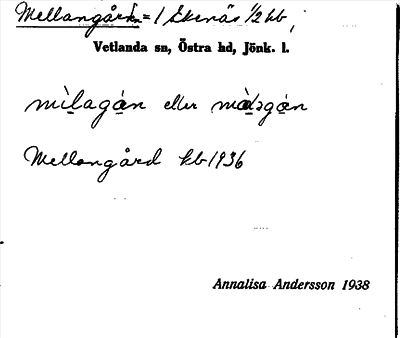 Mellangård = 1 Ekenäs 1/2 kb,
Vetlanda sn, Östra hd, Jönk. l.
mìlagán eller
Mellangård kb 1936
Annalisa Andersson 1938